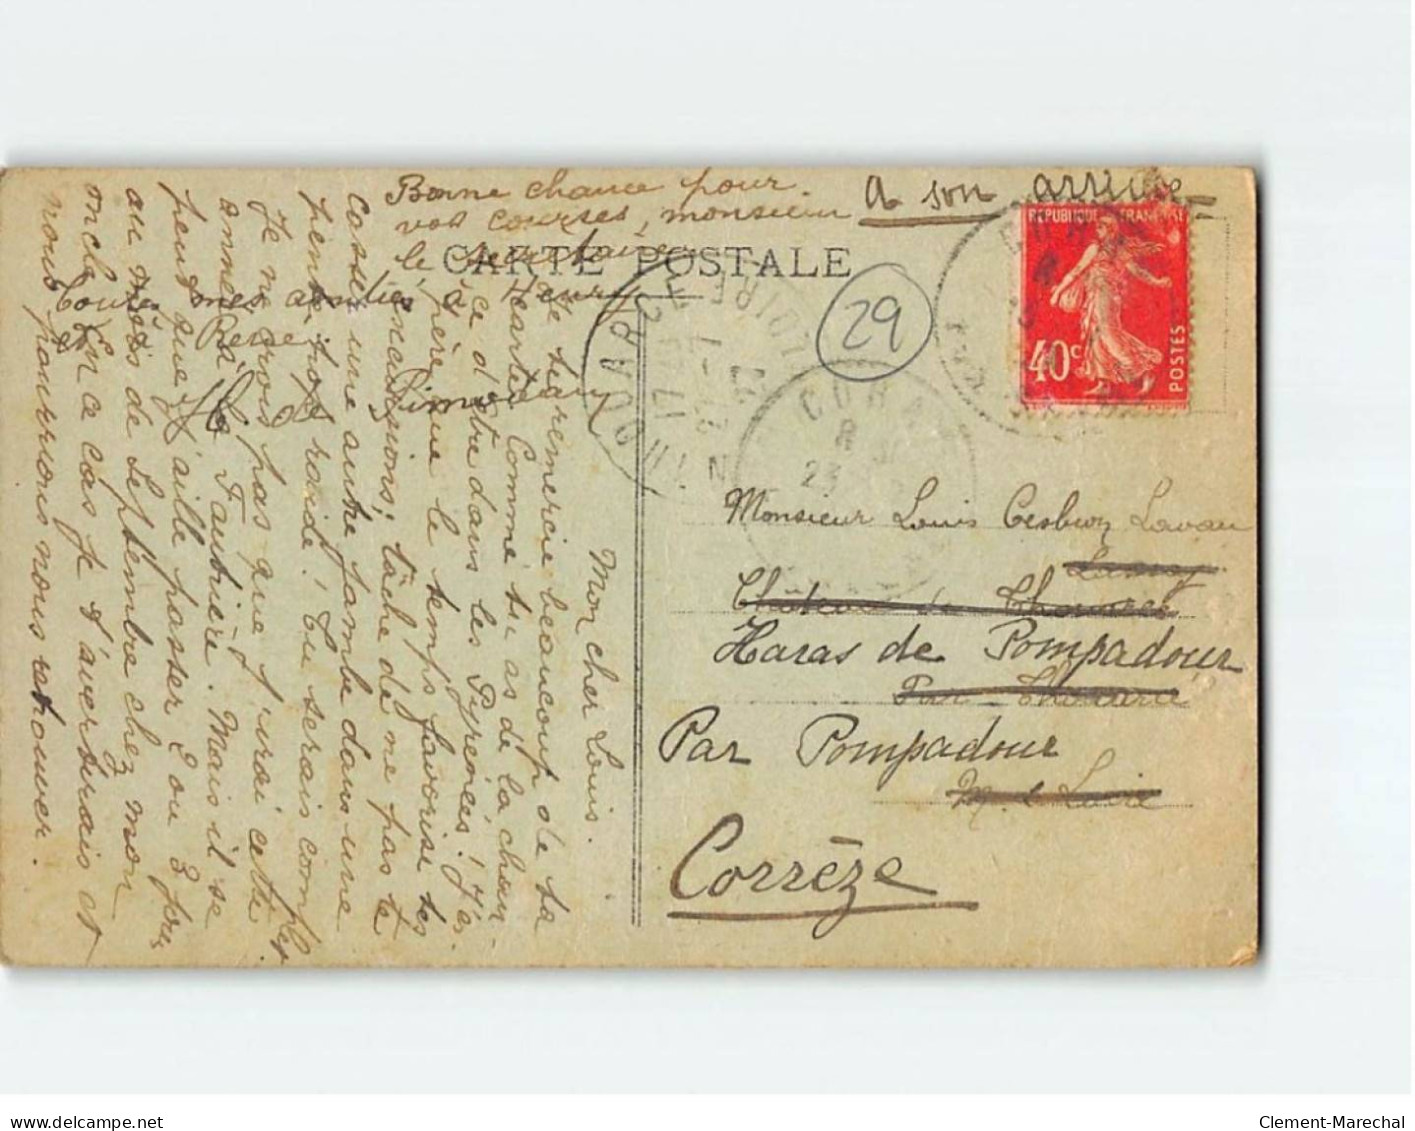 Bonne chance pour
vos courses, monsieur
le secrétaire
A son arrivée
CARTE POSTALE
REPUBLIQUE FRANÇAISE
40c
POSTES
29
Mon cher Louis.
Je te remercie beaucoup de ta
carte. Comme tu as de la chan-
ce d'être dans les Pyrénées! J'es-
père que le temps favorise tes
excursions; tâche de ne pas te
casser une autre jambe dans une
pente trop raide! Tu serais complet
Je ne crois pas que j'irai cette
année à La Faubrière. Mais il se
peut que j'aille passer 2 ou 3 jours
au mois de septembre chez mon
oncle. En ce cas je t'avertirais et
nous pourrions nous retrouver.
Toutes mes amitiés à Henry
& René.
H de Rimodan
Monsieur Louis Cesbron Lavau
Château de
Haras de Pompadour
Par
Par Pompadour
M. & Loire
Corrèze
LOIRE
17
23
Clement-Marechal